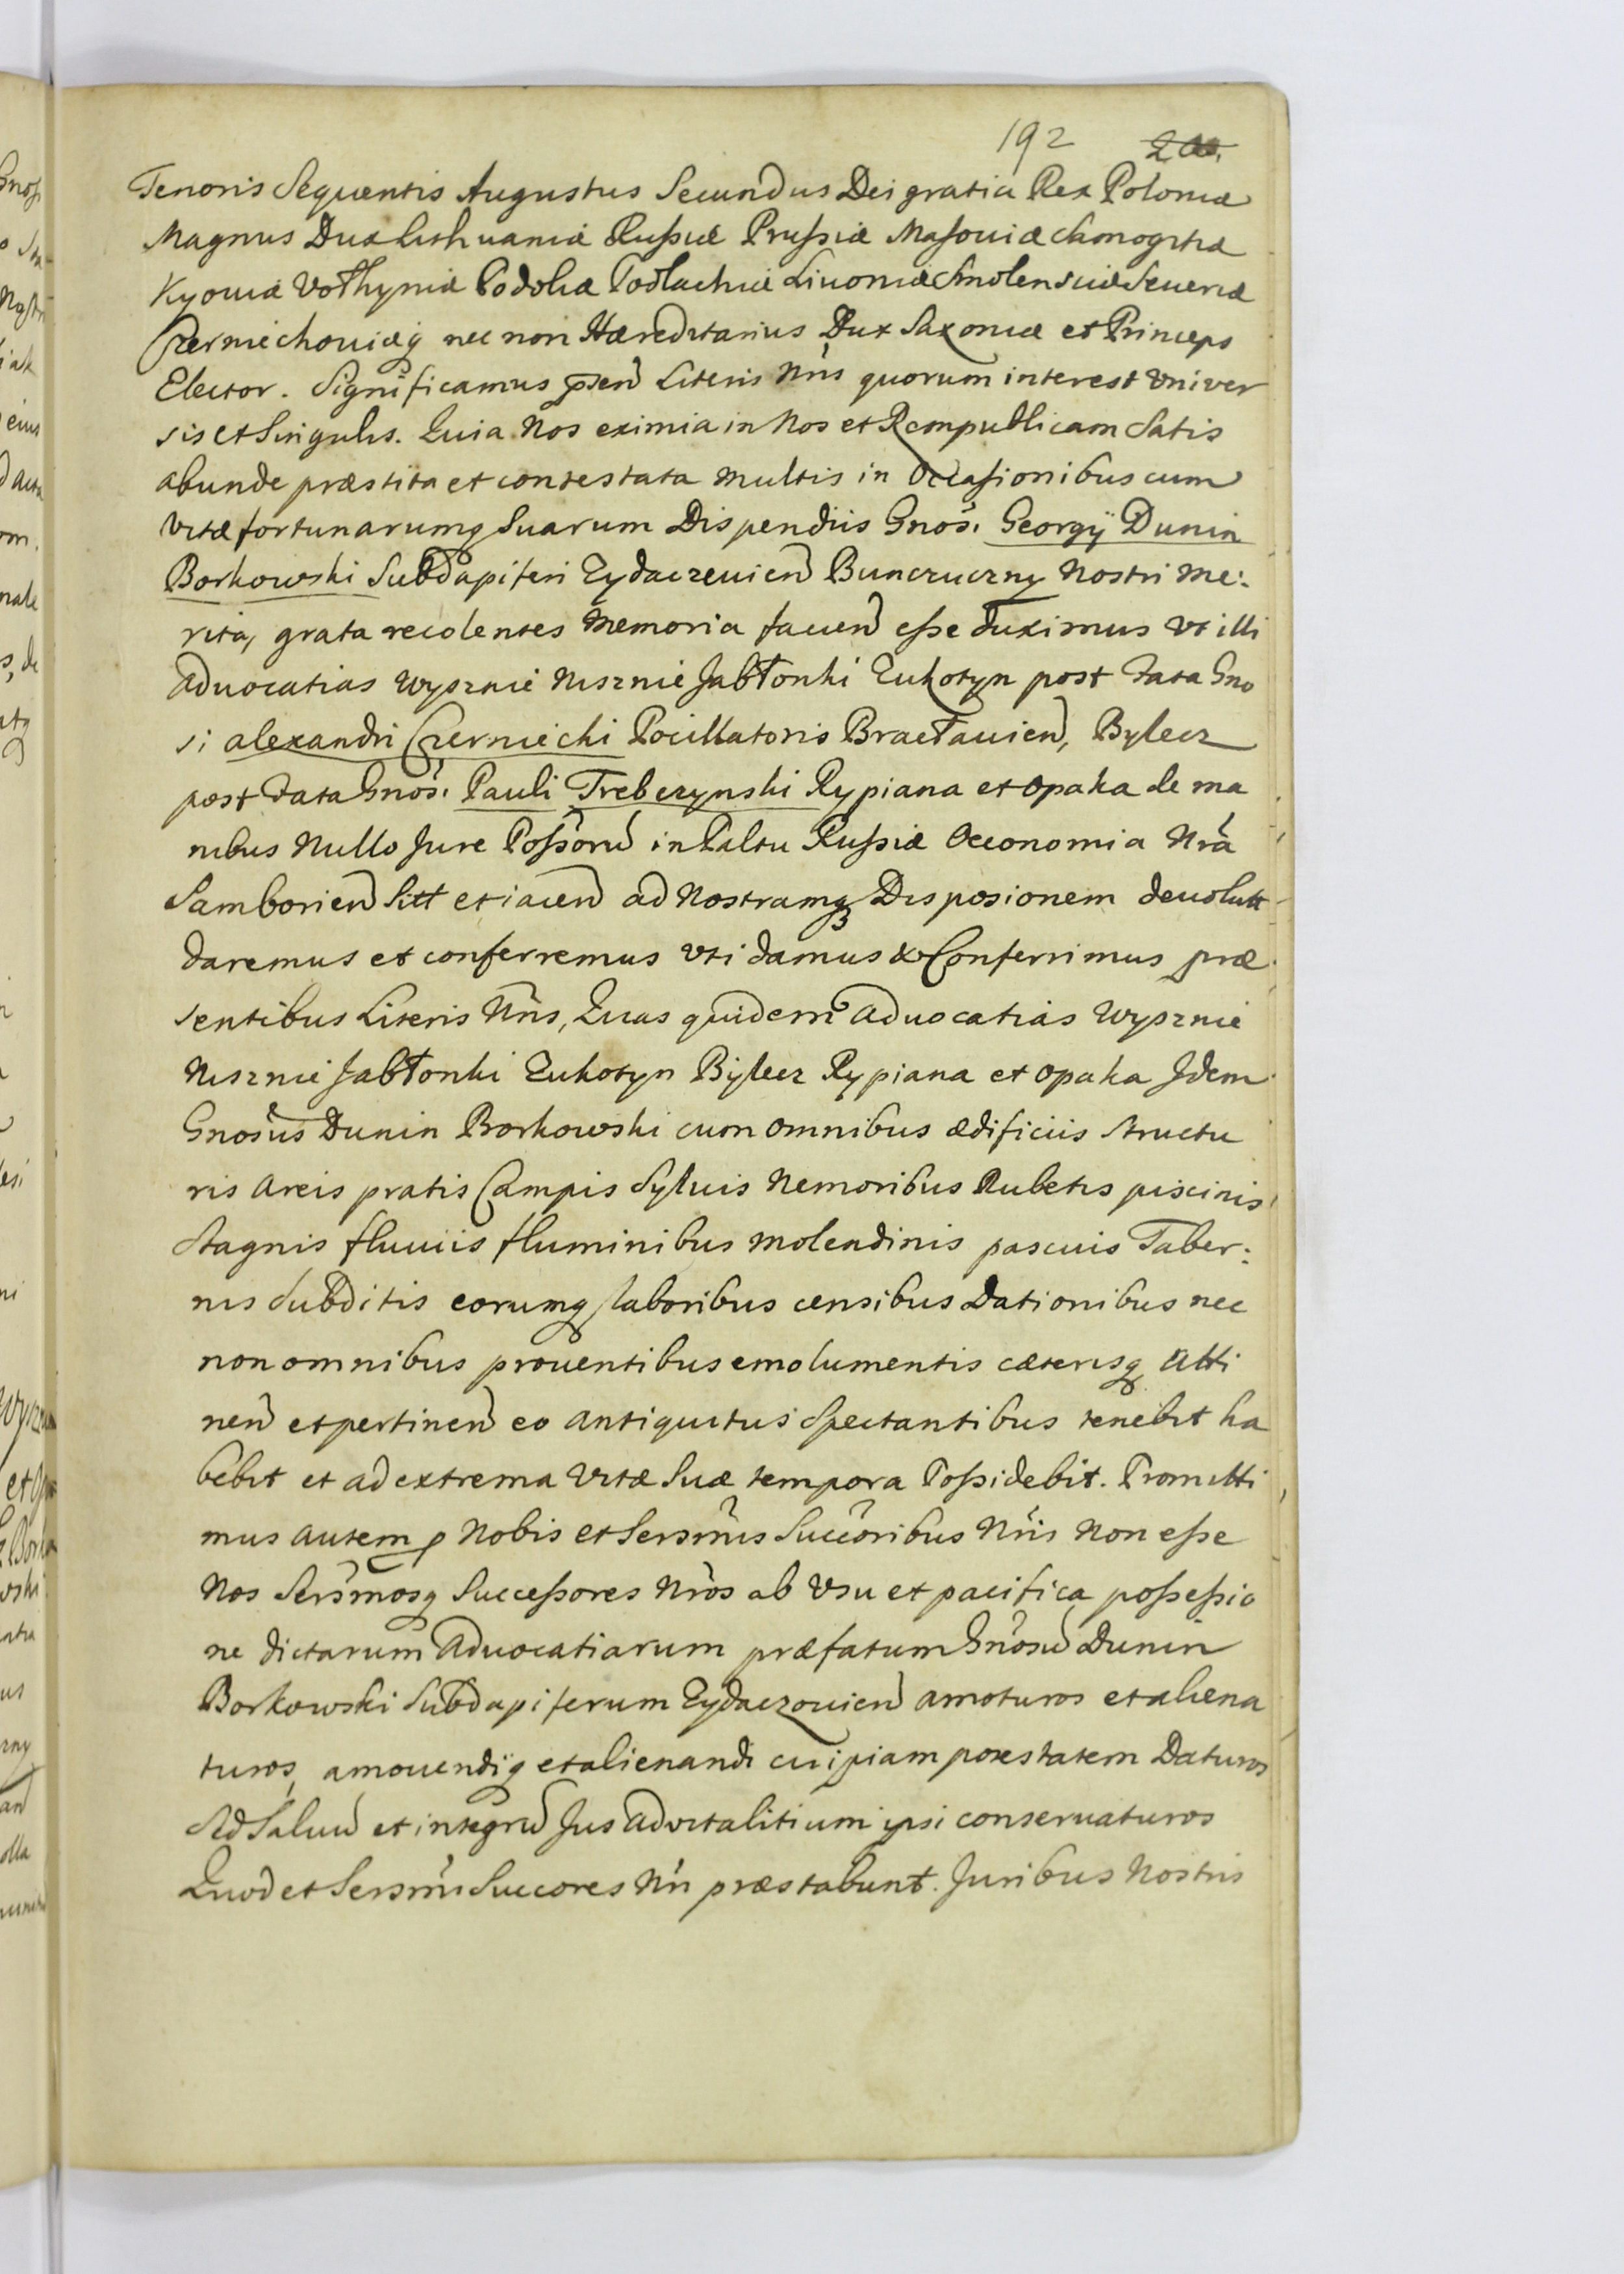 192 200.
Tenoris Sequentis Augustus Secundus Dei gratia Rex Poloniæ
Magnus Dux Lithuaniæ Russiæ Prussiæ Masouiæ Samogitiæ
Kyouiæ Vołhyniæ Podoliæ Podlachiæ Liuoniæ Smolensciæ Seueriæ
Czerniechouiæq nec non Hæreditarius Dux Saxoniæ et Princeps
Elector. Significamus pñtẽn Literis Nris quorum interest Vniver
sis et Singulis. Quia Nos eximia in Nos et Rempublicam Satis
abunde præstita et contestata multis in Occasionibus cum
Vitæ fortunarumq Suarum Dispendiis Gnosi Georgÿ Dunin
Borkowski Subdapiferi Zydaczeuien Bunczuczny Nostri Me:
rita, grata recolentes Memoria faciend esse duximus Vt illi
Aduocatias Wysznie Niznie Jabłonki Zukotyn post Fata Gno
si Alexandri Czerniechi Pocillatoris Bracłauien, Bylecz
post Fata Gnosi Pauli Treberzynski Rypiana et Opaka de ma
nibus Nullo Jure Possorũ in Paltu Russiæ Oeconomia Nrã
Samborien Sitt et iacen ad Nostramq Disposionem deuolutt
daremus et conferremus vti damus & Conferrimus præ
sentibus Literis Nris, Quas quidem Aduocatias Wysznie
Niznie Jabłonki Zukotyn Bylecz Rypiana et Opaka Idem
Gnosus Dunin Borkowski cum omnibus ædificiis Structu
ris Areis pratis Campis Syluis Nemoribus Rubetis piscinis
Stagnis fluuiis fluminibus molendinis pascuis Taber:
nis Subditis eorumq laboribus censibus Dationibus nec
non omnibus prouentibus emolumentis cæterisq Atti
nen et pertinen eo antiquitus Spectantibus tenebit ha
bebit et ad extrema Vitæ Suæ tempora Possidebit. Promitti
mus autem p Nobis et Sersmis Succoribus Nris Non esse
Nos Sersmosq Successores Nros ab Vsu et pacifica possessio
ne dictarum Aduocatiarum præfatum Gnosũ Dunin
Borkowski Subdapiferum Zydaczouien amoturos et aliena
turos, amouendiq et alienandi cuipiam potestatem Daturos
Sed Saluũ et integrũ Jus Aduitalitium ipsi conseruaturos
Quod et Sersmi Succores Nri præstabunt. Juribus Nostris